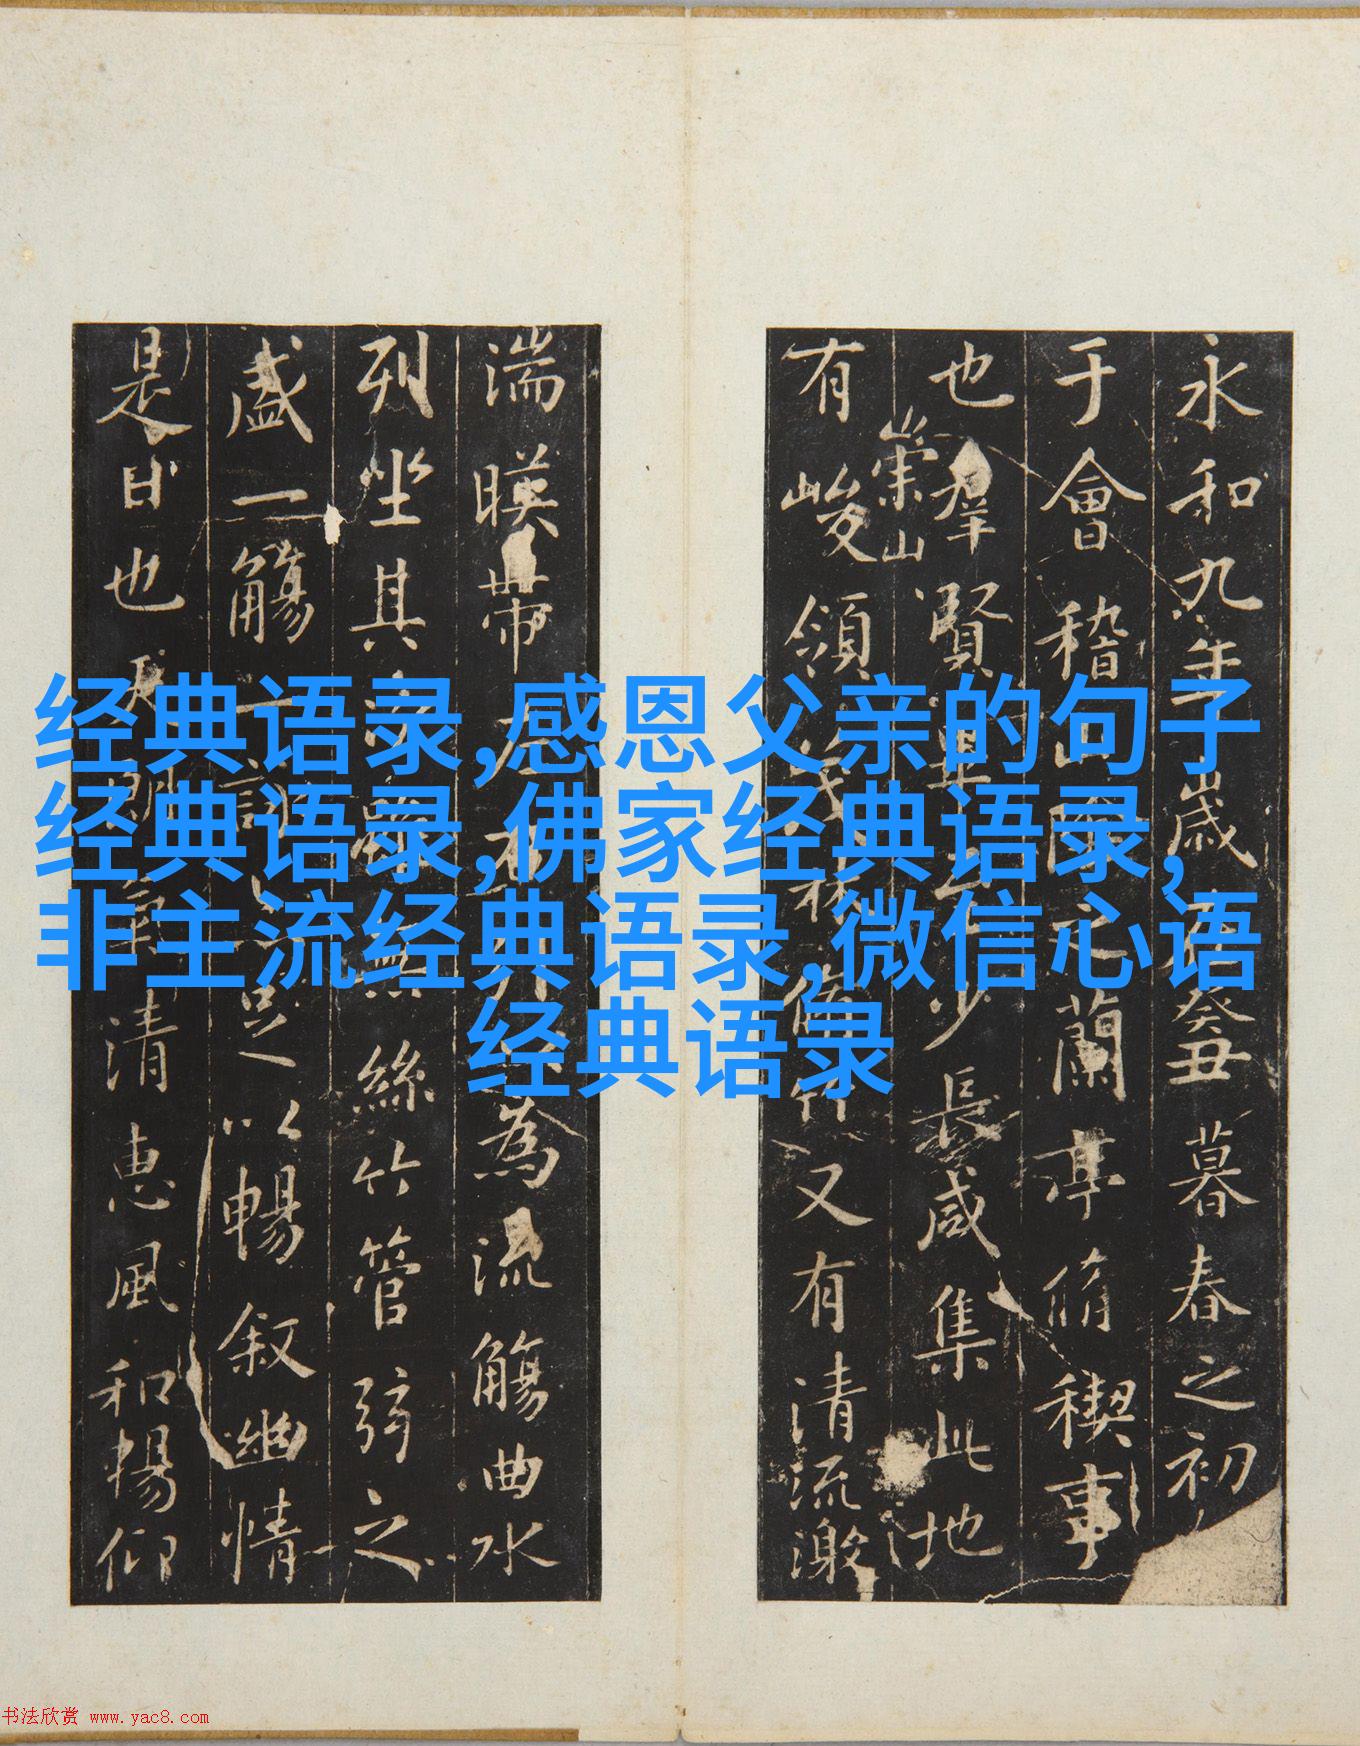 永和九年歲癸丑暮春之初
于會稽之蘭亭脩稧事
也羣賢畢少長咸集此地
崇山
有峻領茂林脩竹又有清流激
湍暎帶左右為流觴曲水
列坐其絲竹管弦之
盛一觴一詠足以暢叙幽情
是日也天朗氣清惠風和暢仰
经典语录,感恩父亲的句子
经典语录,佛家经典语录,
非主流经典语录,微信心语
经典语录
书法欣赏 www.yac8.com